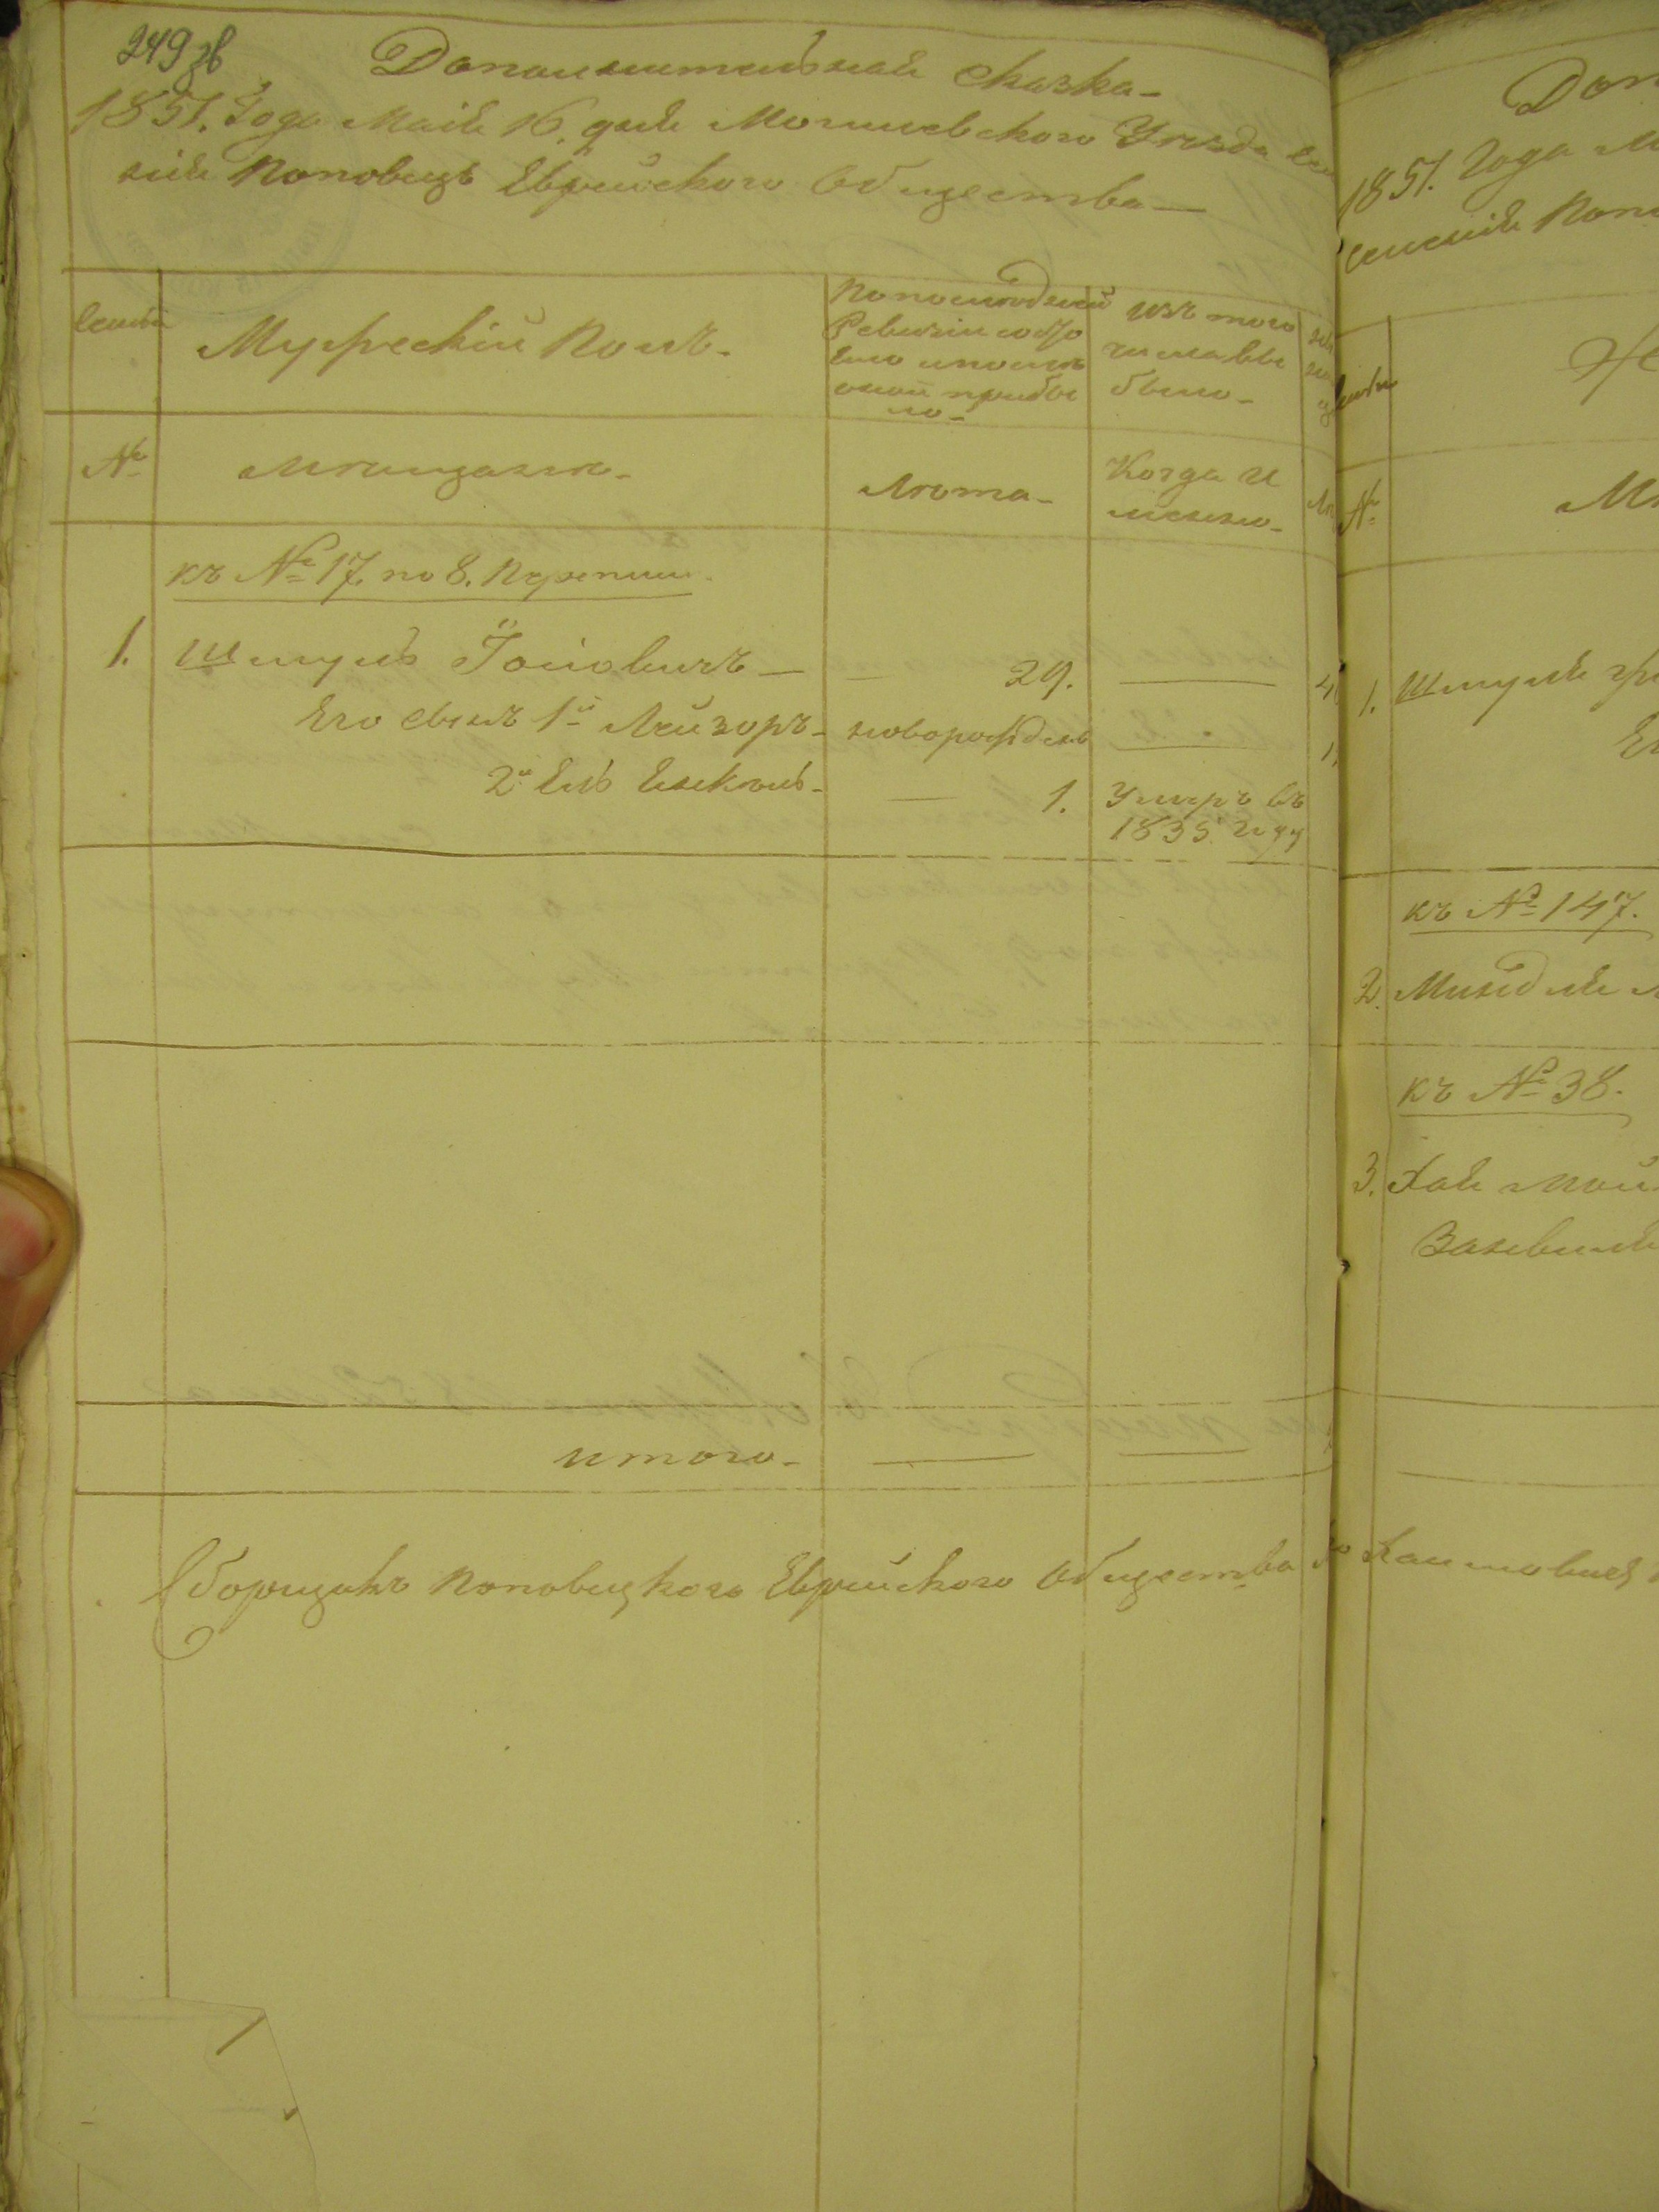 249 зв
Дополнительная сказка
1851. Года Маія 16. дня Могилевского Уезда селе
нія Поповецъ Еврейского Общества
Семьи
Мужескій Полъ
По последней
Ревизіи состо
яло и после
оной прибы
ло
изъ того
числа вы
было
№
Мещане
Лета
Когда и
менно
къ № 17. по 8. Переписи
1. Шмуль Іойновичъ 29.
Его сынъ 1й Лейзоръ новорожденъ
2й Ель 1. Умеръ въ
1835 году
итого
Сборщикъ Поповецкого Еврейского Общества
1851. Года
селенія
№
1. Шмуля
къ № 147.
2. Миндля
къ № 38.
3. Хая